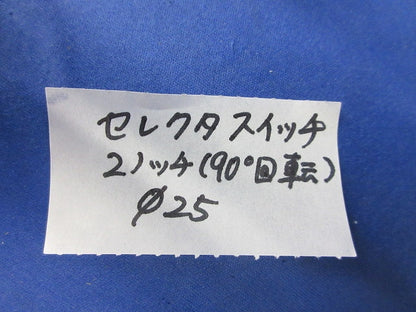 セレクタスイッチ
2ノッチ(90°回転)
φ25